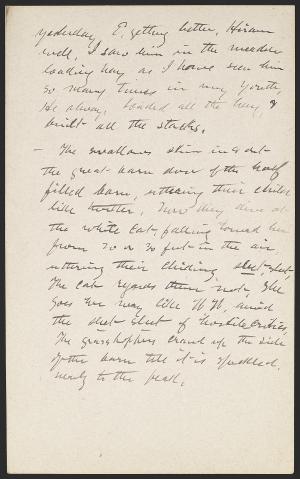 yesterday. E. getting better, Hiram
well, I saw him in the meadow
loading hay as I have seen him
so many times in my youth,
He always loaded all the hay, &
built all the stacks.
— The swallows skim in & out
the great barn door of the half
filled barn, uttering their childlike
like twitter. Now they dive at
the white cat, falling toward her
from 20 or 30 feet in the air,
uttering their chiding, sleet, sleet,
The cat regards them not, she
goes her way like W.W. amid
the sleet sleet of hostile critics.
The grasshoppers crawl up the side
of the barn till it is speckled,
nearly to the peak.